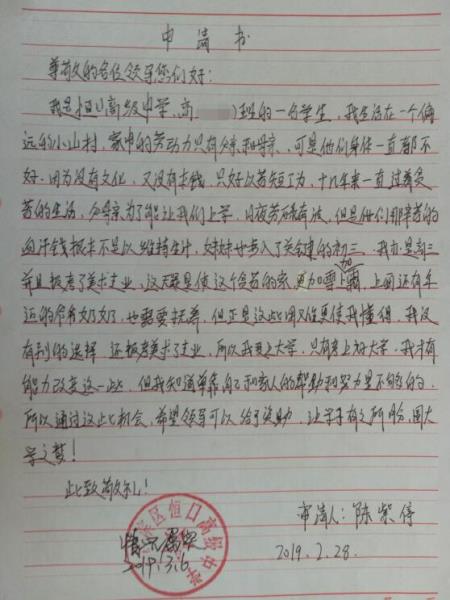 申请书
尊敬的各位领导您们好:
我是恒口高级中学,高 班的一名学生,我生活在一个偏
远的小山村,家中的劳动力只有父亲和母亲,可是他们身体一直都不
好,因为没有文化,又没有本钱,只好以劳短工为,十几年来一直过着贫
苦的生活,父母亲为了能让我们上学,日夜劳碌奔波,但是他们那辛苦的
血汗钱根本不足以维持生计,妹妹也步入了关键的初三,我亦是高三
并且报考了美术专业,这无疑是使这个贫苦的家更加雪上加霜,上面还有年
迈的爷爷奶奶,也需要扶养,但正是这些困难更使我懂得,我没
有别的选择,还报考美术专业,所以我要上大学,只有考上好大学,我才有
能力改变这一些,但我知道单靠自己和家人的帮助和努力是不够的,
所以通过这此机会,希望领导可以给予奖助,让学子有之所盼,圆大
学之梦!
此致敬礼!
申请人:陈紫停
2019.2.28.
区恒口高级中学
情况属实
2019.3.6.